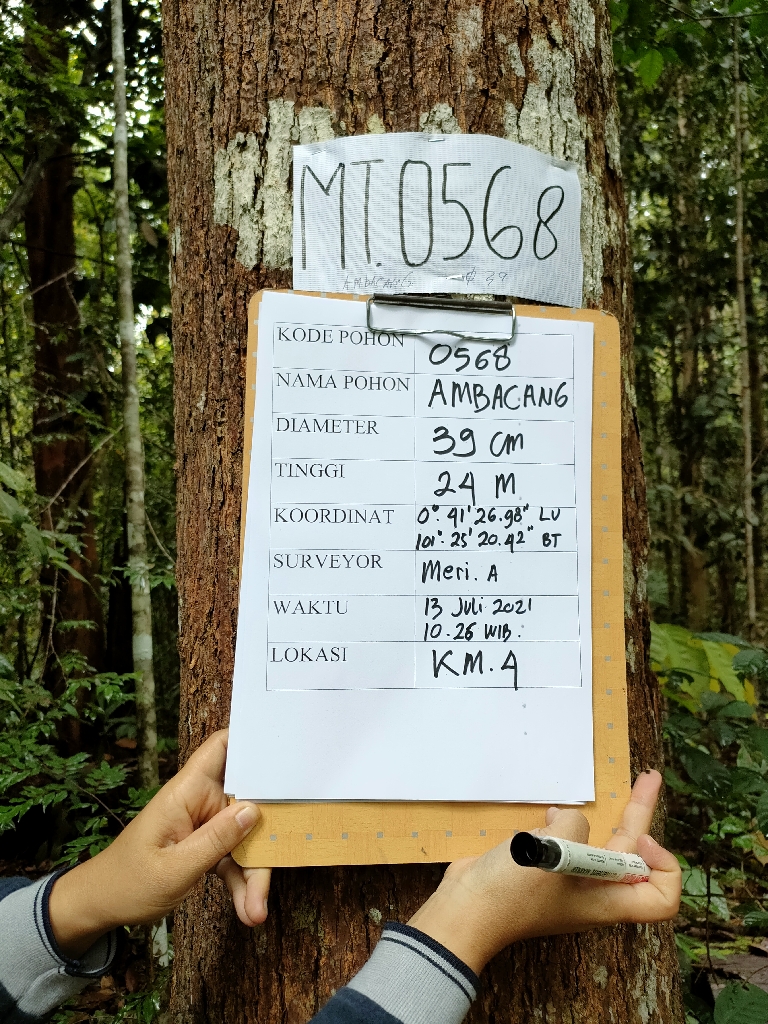 MT.0568
AMBACANG 39
KODE POHON 0568
NAMA POHON AMBACANG
DIAMETER 39 cm
TINGGI 24 M
KOORDINAT 0°. 41' 26.98" LU
101°. 25' 20.42" BT
SURVEYOR Meri. A
WAKTU 13 Juli 2021
10.26 WIB.
LOKASI KM. 4